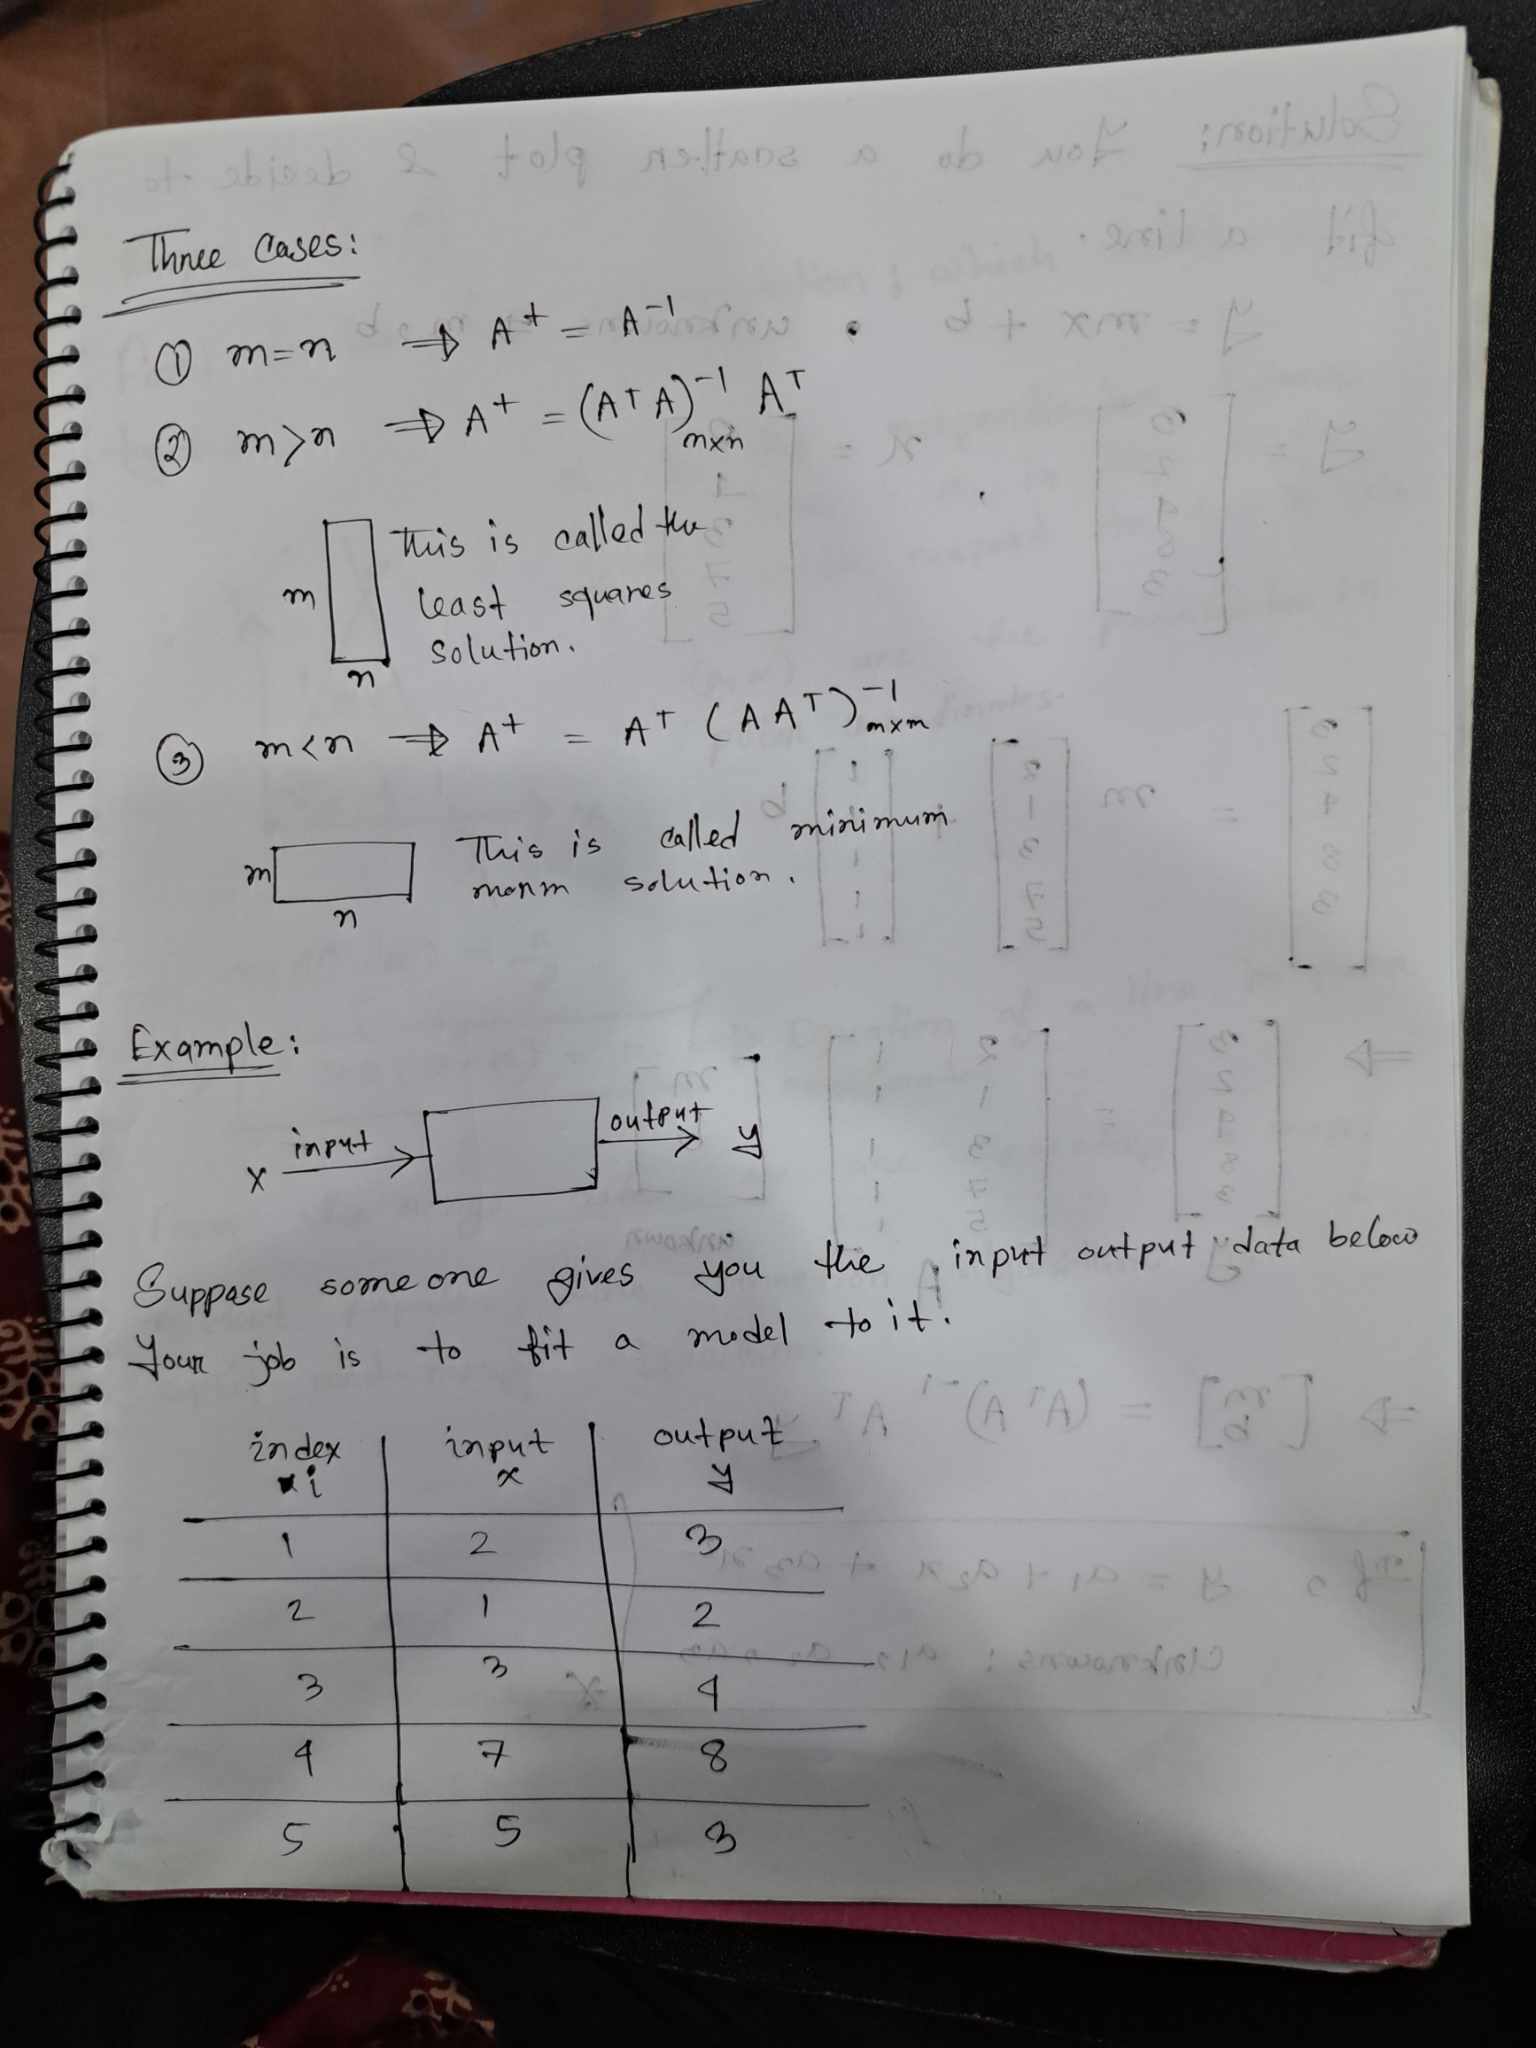 Three Cases:
① m=n ⇒ A⁺ = A⁻¹
② m>n ⇒ A⁺ = (AᵀA)⁻¹ Aᵀ
n×n
This is called the
m least squares
solution.
n
③ m<n ⇒ A⁺ = Aᵀ (AAᵀ)⁻¹ m×m
m This is called minimum
norm solution.
n
Example:
x input output y
Suppose someone gives you the input output data below
Your job is to fit a model to it.
index input output
i x y
1 2 3
2 1 2
3 3 4
4 7 8
5 5 3